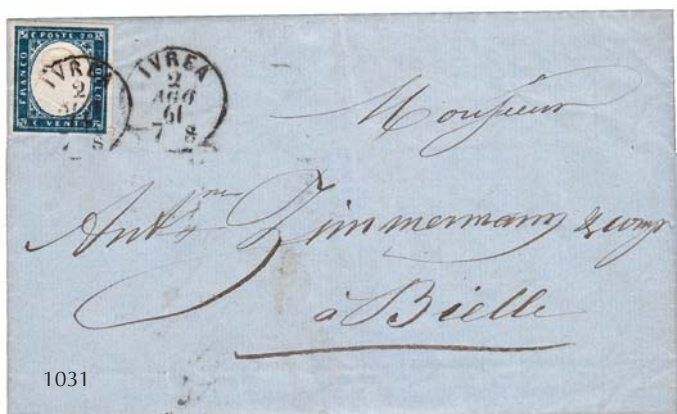 C POSTE 20
FRANCO
BOLLO
C VENTI
IVREA
2
7 S
IVREA
2
AGO
61
7 S
Monsieur
Antne Zimmermann & comp
à Bielle
1031